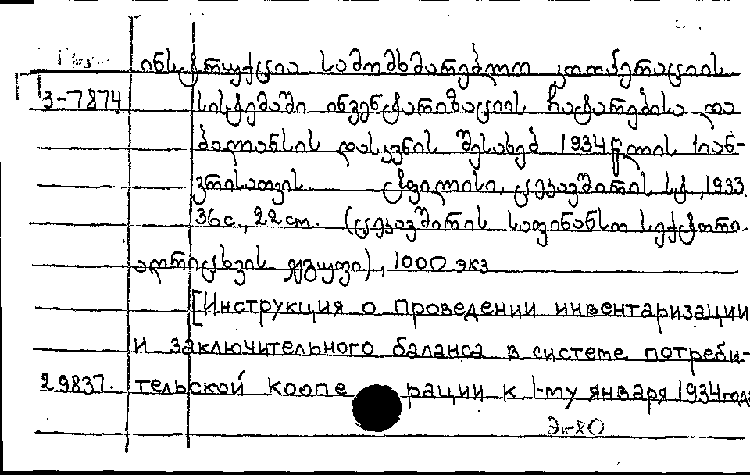 ინსტრუქცია სამომხმარებლო კოოპერაციის
3-7874 სისტემაში ინვენტარიზაციის ჩატარებისა და
ბალანსის დასკვნის შესახებ 1934 წლის 1 იან-
ვრისათვის. ტფილისი, ცეკავშირის სტ., 1933.
36 с., 22 cm. (ცეკავშირის საფინანსო სექტორი.
აღრიცხვის ჯგუფი), 1000 экз
[Инструкция о проведении инвентаризации
и заключительного баланса в системе потреби-
29837. тельской коопе рации к 1-му января 1934 года